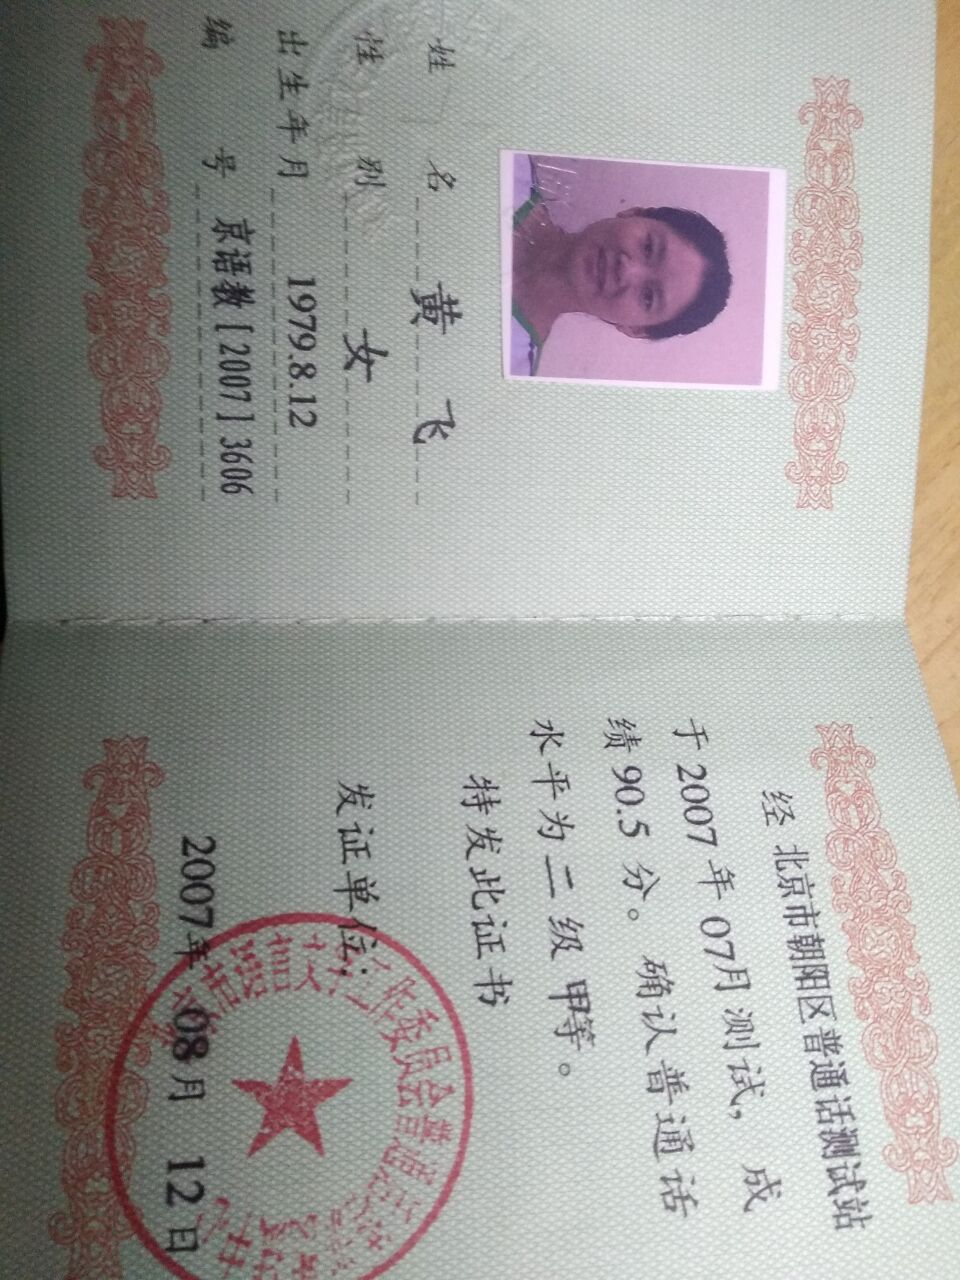 姓 名 黄 飞
性 别 女
出生年月 1979.8.12
编 号 京语教[2007]3606
经 北京市朝阳区普通话测试站
于 2007 年 07月测试，成
绩 90.5 分。确认普通话
水平为 二 级 甲等。
特发此证书
发证单位:
2007年 08月 12日
语言文字工作委员会普通话